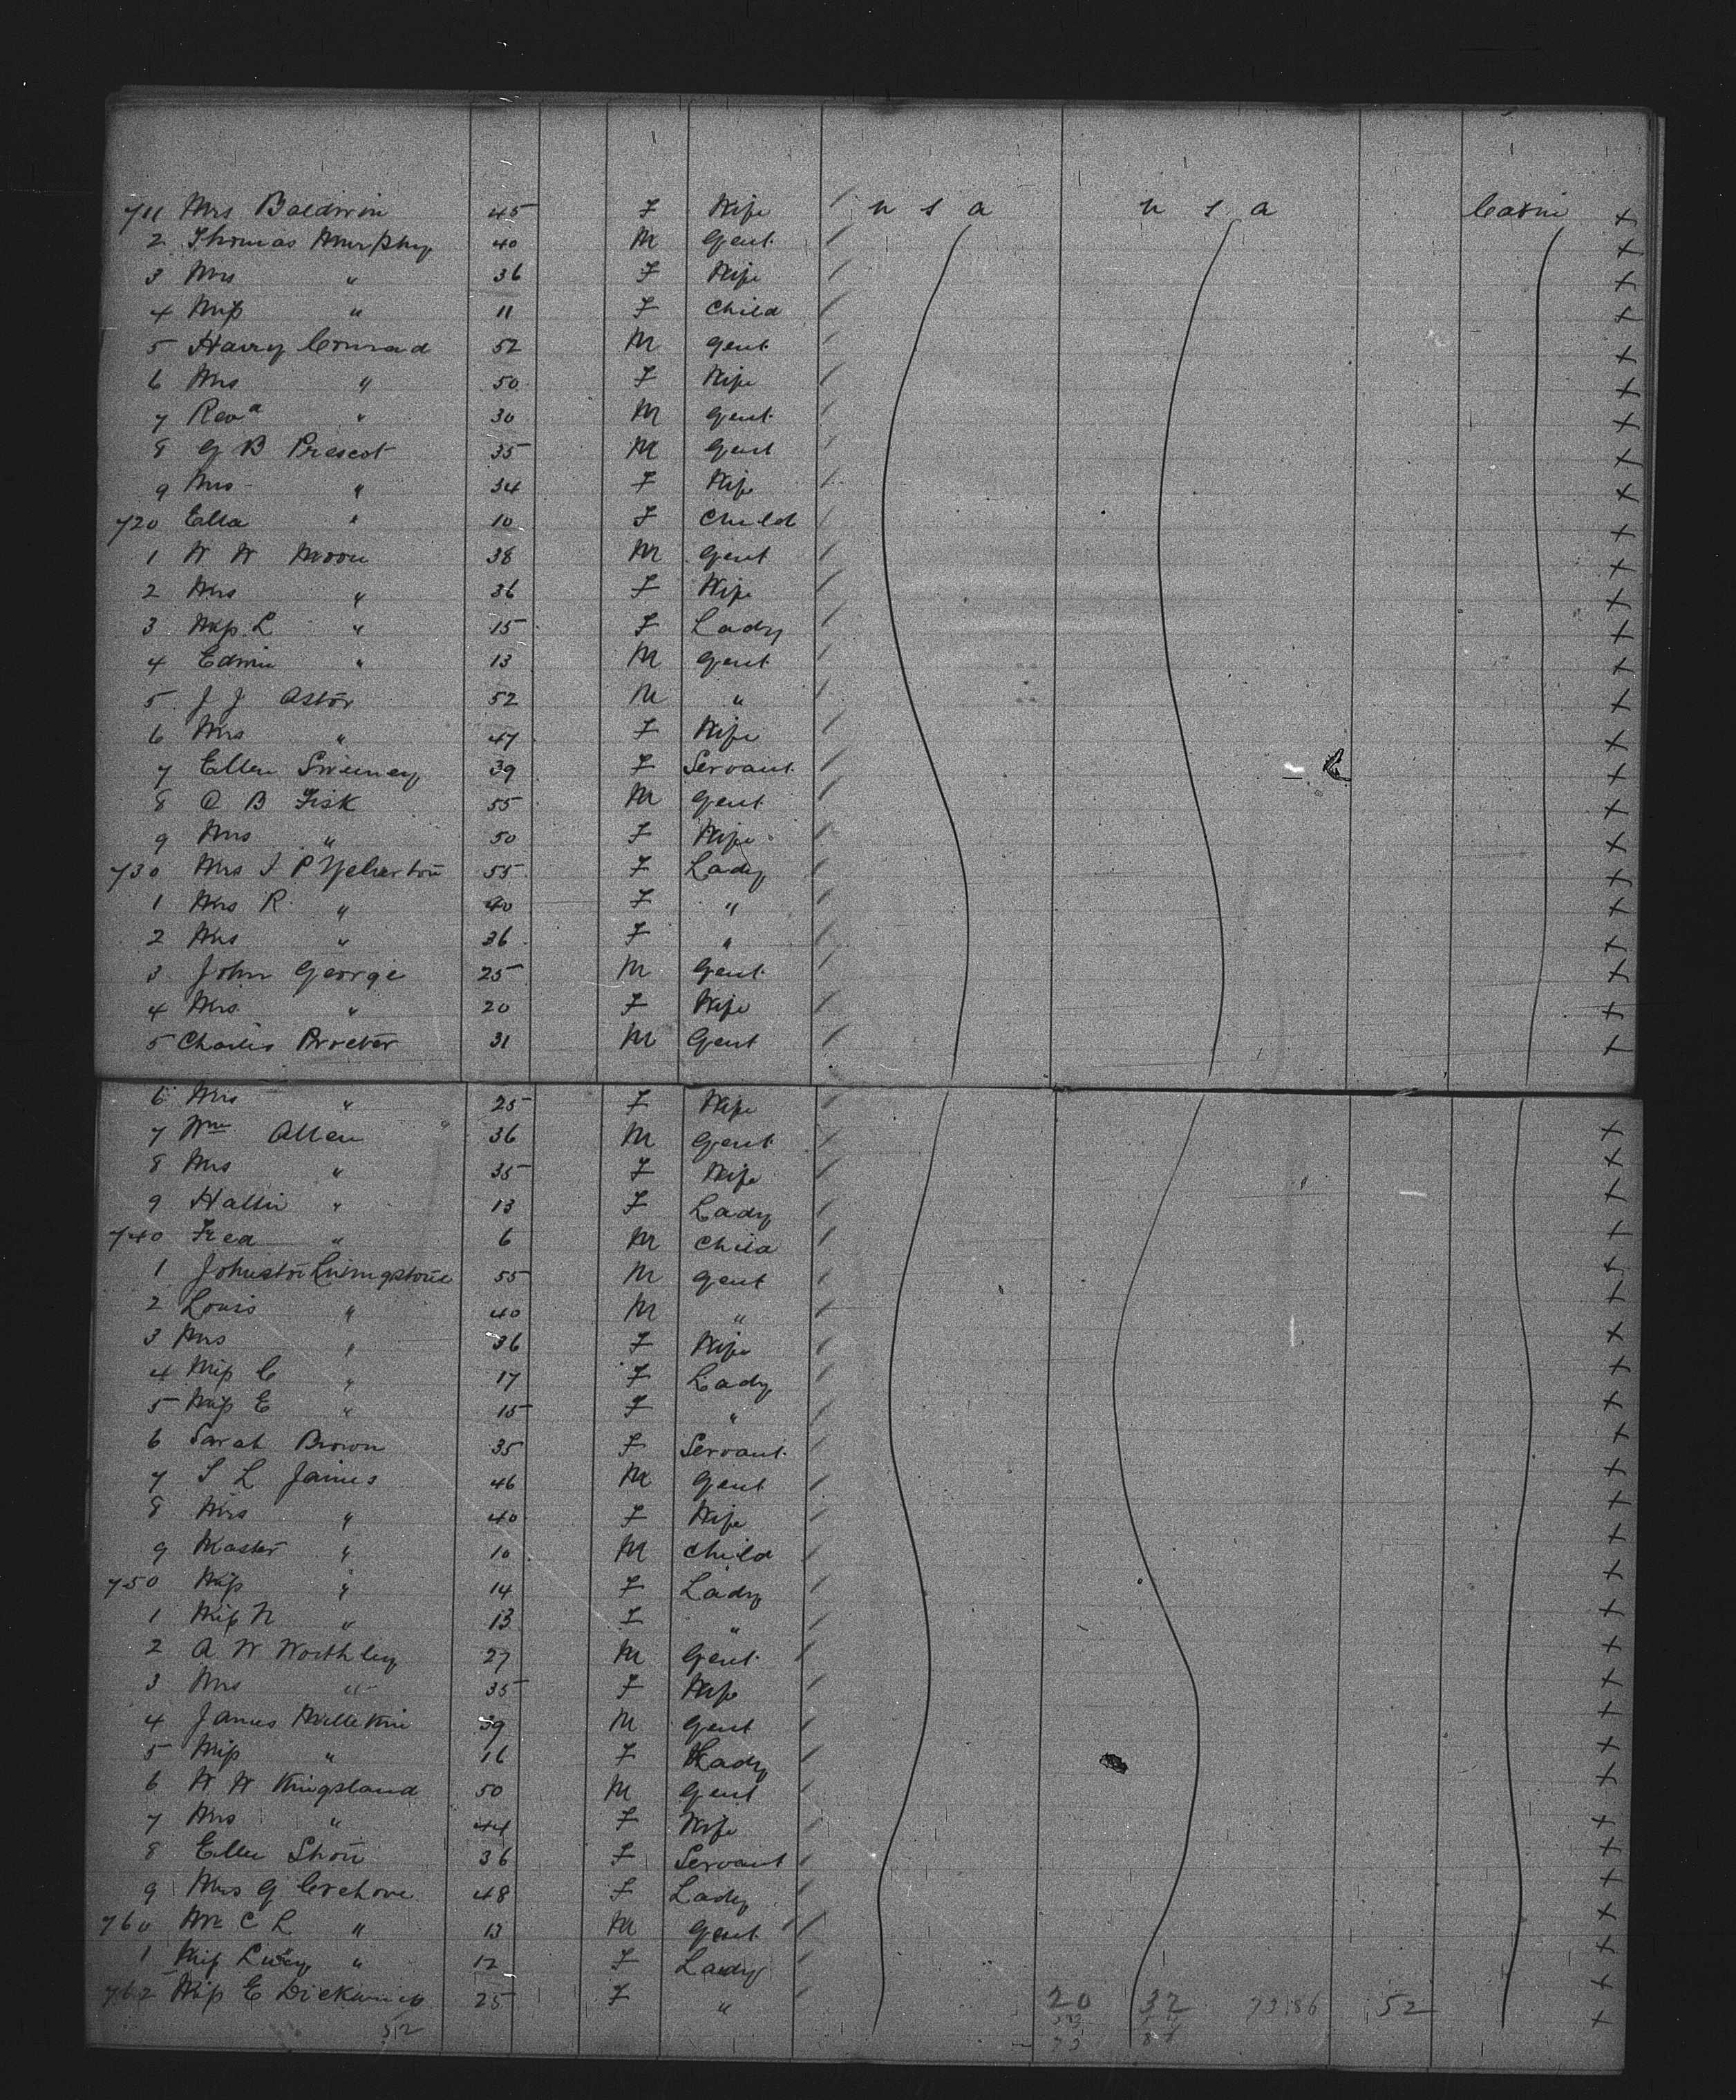 711 Mrs Baldwin 45 F Wife / U S A U S A Cabin x
2 Thomas Murphy 40 M Gent / x
3 Mrs " 36 F Wife / x
4 Miss " 11 F Child / x
5 Harry Conrad 52 M Gent x
6 Mrs " 50 F Wife / x
7 Revd " 30 M Gent / x
8 G B Prescot 35 M Gent / x
9 Mrs " 34 F Wife / x
720 Ella " 10 F Child / x
1 W W Moore 38 M Gent / x
2 Mrs " 36 F Wife / x
3 Miss L " 15 F Lady / x
4 Edwin " 13 M Gent / x
5 J J Astor 52 M " / x
6 Mrs " 47 F Wife / x
7 Ellen Sweeney 39 F Servant / x
8 C B Fisk 55 M Gent / x
9 Mrs " 50 F Wife / x
730 Mrs J P Yelverton 55 F Lady / x
1 Mrs R " 40 F " / x
2 Mrs " 36 F " / x
3 John George 25 M Gent / x
4 Mrs " 20 F Wife / x
5 Charles Procter 31 M Gent / x
6 Mrs " 25 F Wife / x
7 Wm Allen 36 M Gent / x
8 Mrs " 35 F Wife / x
9 Hattie " 13 F Lady / x
740 Fred " 6 M Child / x
1 Johnston Livingstone 55 M Gent / x
2 Louis " 40 M " / x
3 Mrs " 36 F Wife / x
4 Miss C " 17 F Lady / x
5 Miss E " 15 F " / x
6 Sarah Brown 35 F Servant / x
7 S L James 46 M Gent / x
8 Mrs " 40 F Wife / x
9 Master " 10 M Child / x
750 Miss " 14 F Lady / x
1 Miss N " 13 F " / x
2 A W Worthley 27 M Gent / x
3 Mrs " 35 F Wife / x
4 James Millekin 39 M Gent / x
5 Miss " 16 F Lady / x
6 W W Kingsland 50 M Gent / x
7 Mrs " 44 F Wife / x
8 Ellen 36 F Servant / x
9 Mrs G Crehore 48 F Lady / x
760 Mr C L " 13 M Gent / x
1 Miss Lucy " 12 F Lady / x
762 Miss E 25 F " / 20 32 73 86 52 x
52